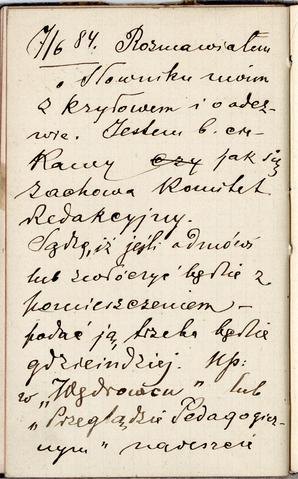 7/6 84. Rozmawiałem
o Słowniku moim
z Kryłowem i o odez-
wie. Jestem b. cie-
kawy czy jak się
zachowa Komitet
Redakcyjny.
Sądzę, iż jeśli odmówi
lub zwlóczyć będzie z
pomieszczeniem –
podać ją trzeba będzie
gdzieindziej. Np:
w „Wędrowcu" lub
„Przeglądzie Pedagogicz-
nym" nareszcie